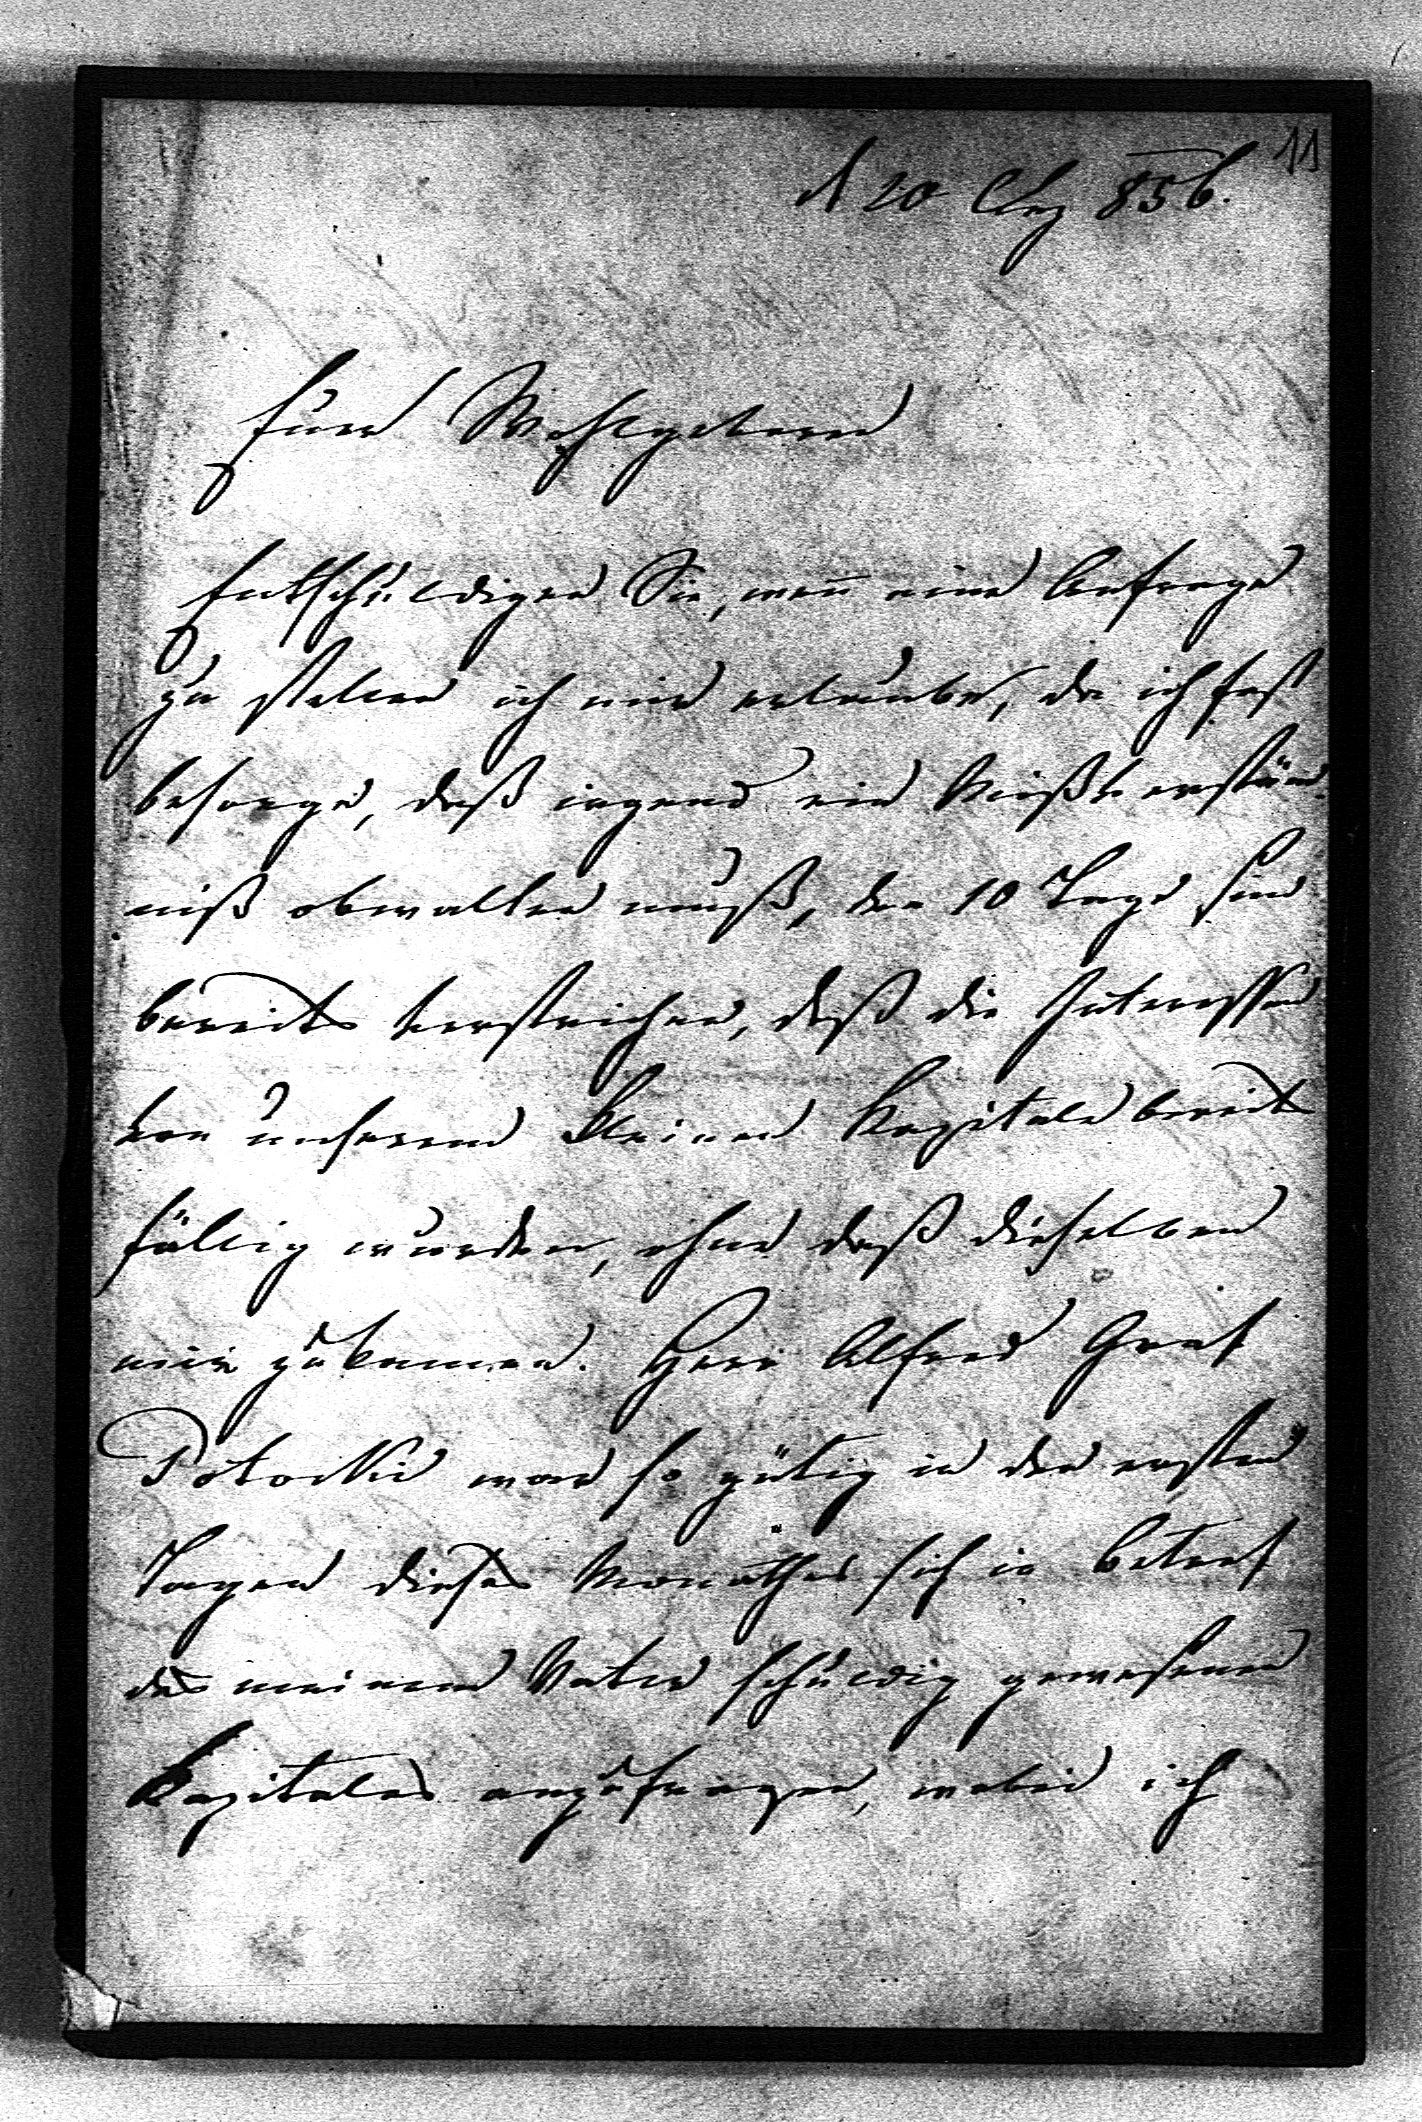 11
d 20 Aug 856.
Euer Wohlgeboren
Entschuldigen Sie, weñ eine Anfrage
zu stellen ich mir erlaube, da ich fast
besorge, daß irgend ein Mißverständ-
niß obwalten muß, da 10 Tage sind
bereits verstrichen, daß die Interessen
von unserem kleinen Kapitale bereits
fällig wurden, ohne daß dieselben
mir zukamen. Herr Alfred Graf
Potocki war so gütig in den ersten
Tagen dieses Monathes sich in Betref
des meinem Vater schuldig gewesenen
Kapitales anzufragen, wobei ich